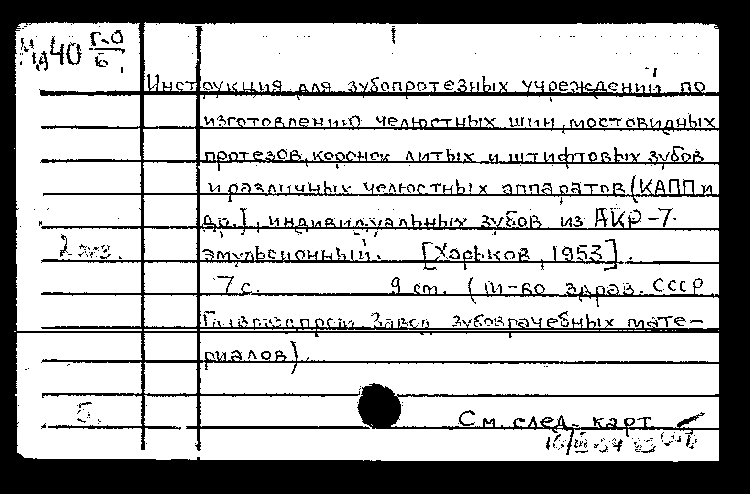 40 Г-0
Б
Инструкция для зубопротезных учреждений по
изготовлению челюстных шин, мостовидных
протезов, коронок литых и штифтовых зубов
и различных челюстных аппаратов (КАПП и
др.], индивидуальных зубов из АКР-7
2 экз. эмульсионный. [Харьков, 1953].
7 с. 9 ст. (М-во здрав. СССР
Завод зубоврачебных мате-
риалов)
Б. См. след. карт.